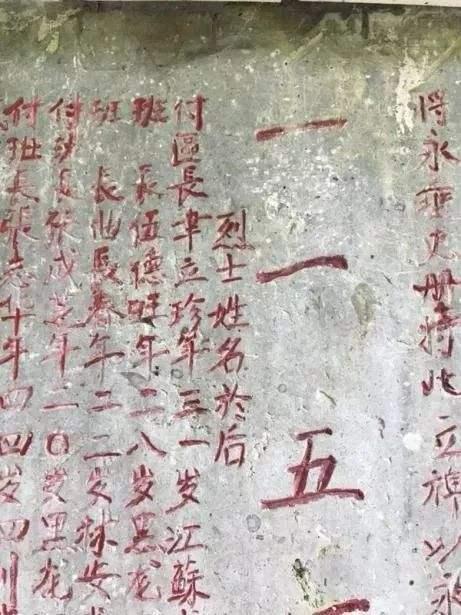 将永垂史册将此立碑以永
一一五
烈士姓名於后
付區長韋立珍年三一岁江蘇
班 長伍德旺年二八岁黑龙
班 長仙長春年二二岁林安
付班長張成芝年二0岁黑龙
付班長張志华年四四岁四川